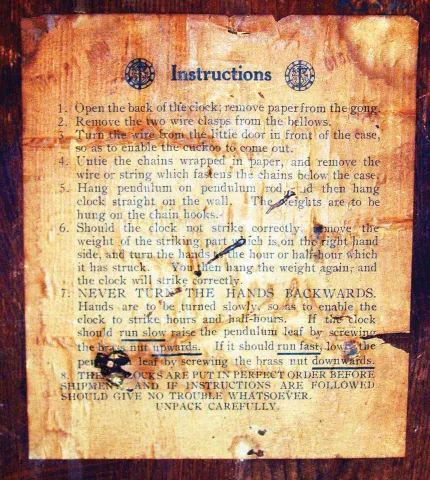 Instructions
1. Open the back of the clock; remove paper from the gong.
2. Remove the two wire clasps from the bellows.
3. Turn the wire from the little door in front of the case,
so as to enable the cuckoo to come out.
4. Untie the chains wrapped in paper, and remove the
wire or string which fastens the chains below the case.
5. Hang pendulum on pendulum rod, and then hang
clock straight on the wall. The weights are to be
hung on the chain hooks.
6. Should the clock not strike correctly, remove the
weight of the striking part which is on the right hand
side, and turn the hands to the hour or half-hour which
it has struck. You then hang the weight again, and
the clock will strike correctly.
7. NEVER TURN THE HANDS BACKWARDS.
Hands are to be turned slowly, so as to enable the
clock to strike hours and half-hours. If the clock
should run slow raise the pendulum leaf by screwing
the brass nut upwards. If it should run fast, lower the
leaf by screwing the brass nut downwards.
8. THESE CLOCKS ARE PUT IN PERFECT ORDER BEFORE
SHIPMENT, AND IF INSTRUCTIONS ARE FOLLOWED
SHOULD GIVE NO TROUBLE WHATSOEVER.
UNPACK CAREFULLY.